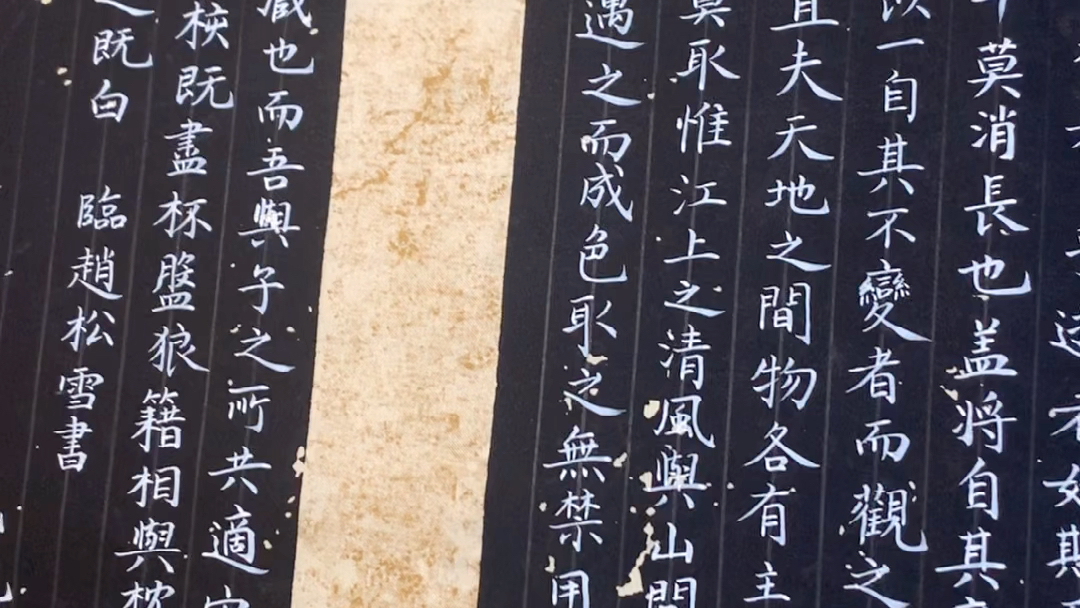 莫消長也盖将自其
一自其不變者而觀之
夫天地之間物各有主
莫取惟江上之清風與山間
遇之而成色取之無禁用
藏也而吾與子之所共適
核既盡杯盤狼籍相與枕
既白
臨趙松雪書